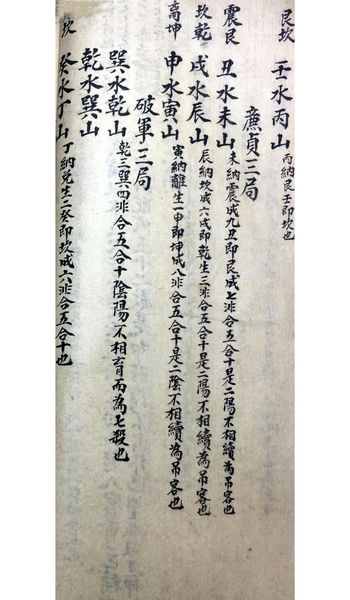 艮坎 壬水丙山 丙納艮壬即坎也
廉貞三局
震艮 丑水未山 未納震成九丑即艮成七非合五合十是二陽不相續為吊客也
坎乾 戌水辰山 辰納坎成六戌即乾生三非合五合十是二陽不相續為吊客也
離坤 申水寅山 寅納離生一申即坤成八非合五合十是二陰不相續為吊客也
破軍三局
巽水乾山 乾三巽四非合五合十陰陽不相育而為七殺也
乾水巽山
坎 癸水丁山 丁納兌生二癸即坎成六非合五合十也